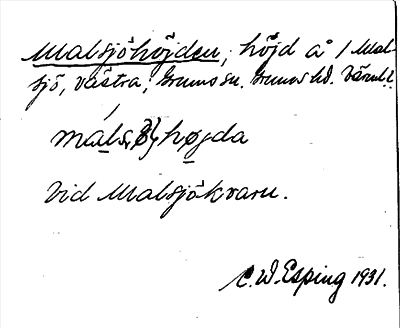 Malsjöhöjden, höjd å 1 Mal-
sjö, västra, Grums sn. Grums hd. Värml.
höjda
Vid Malsjökvarn.
C. W. Esping 1931.